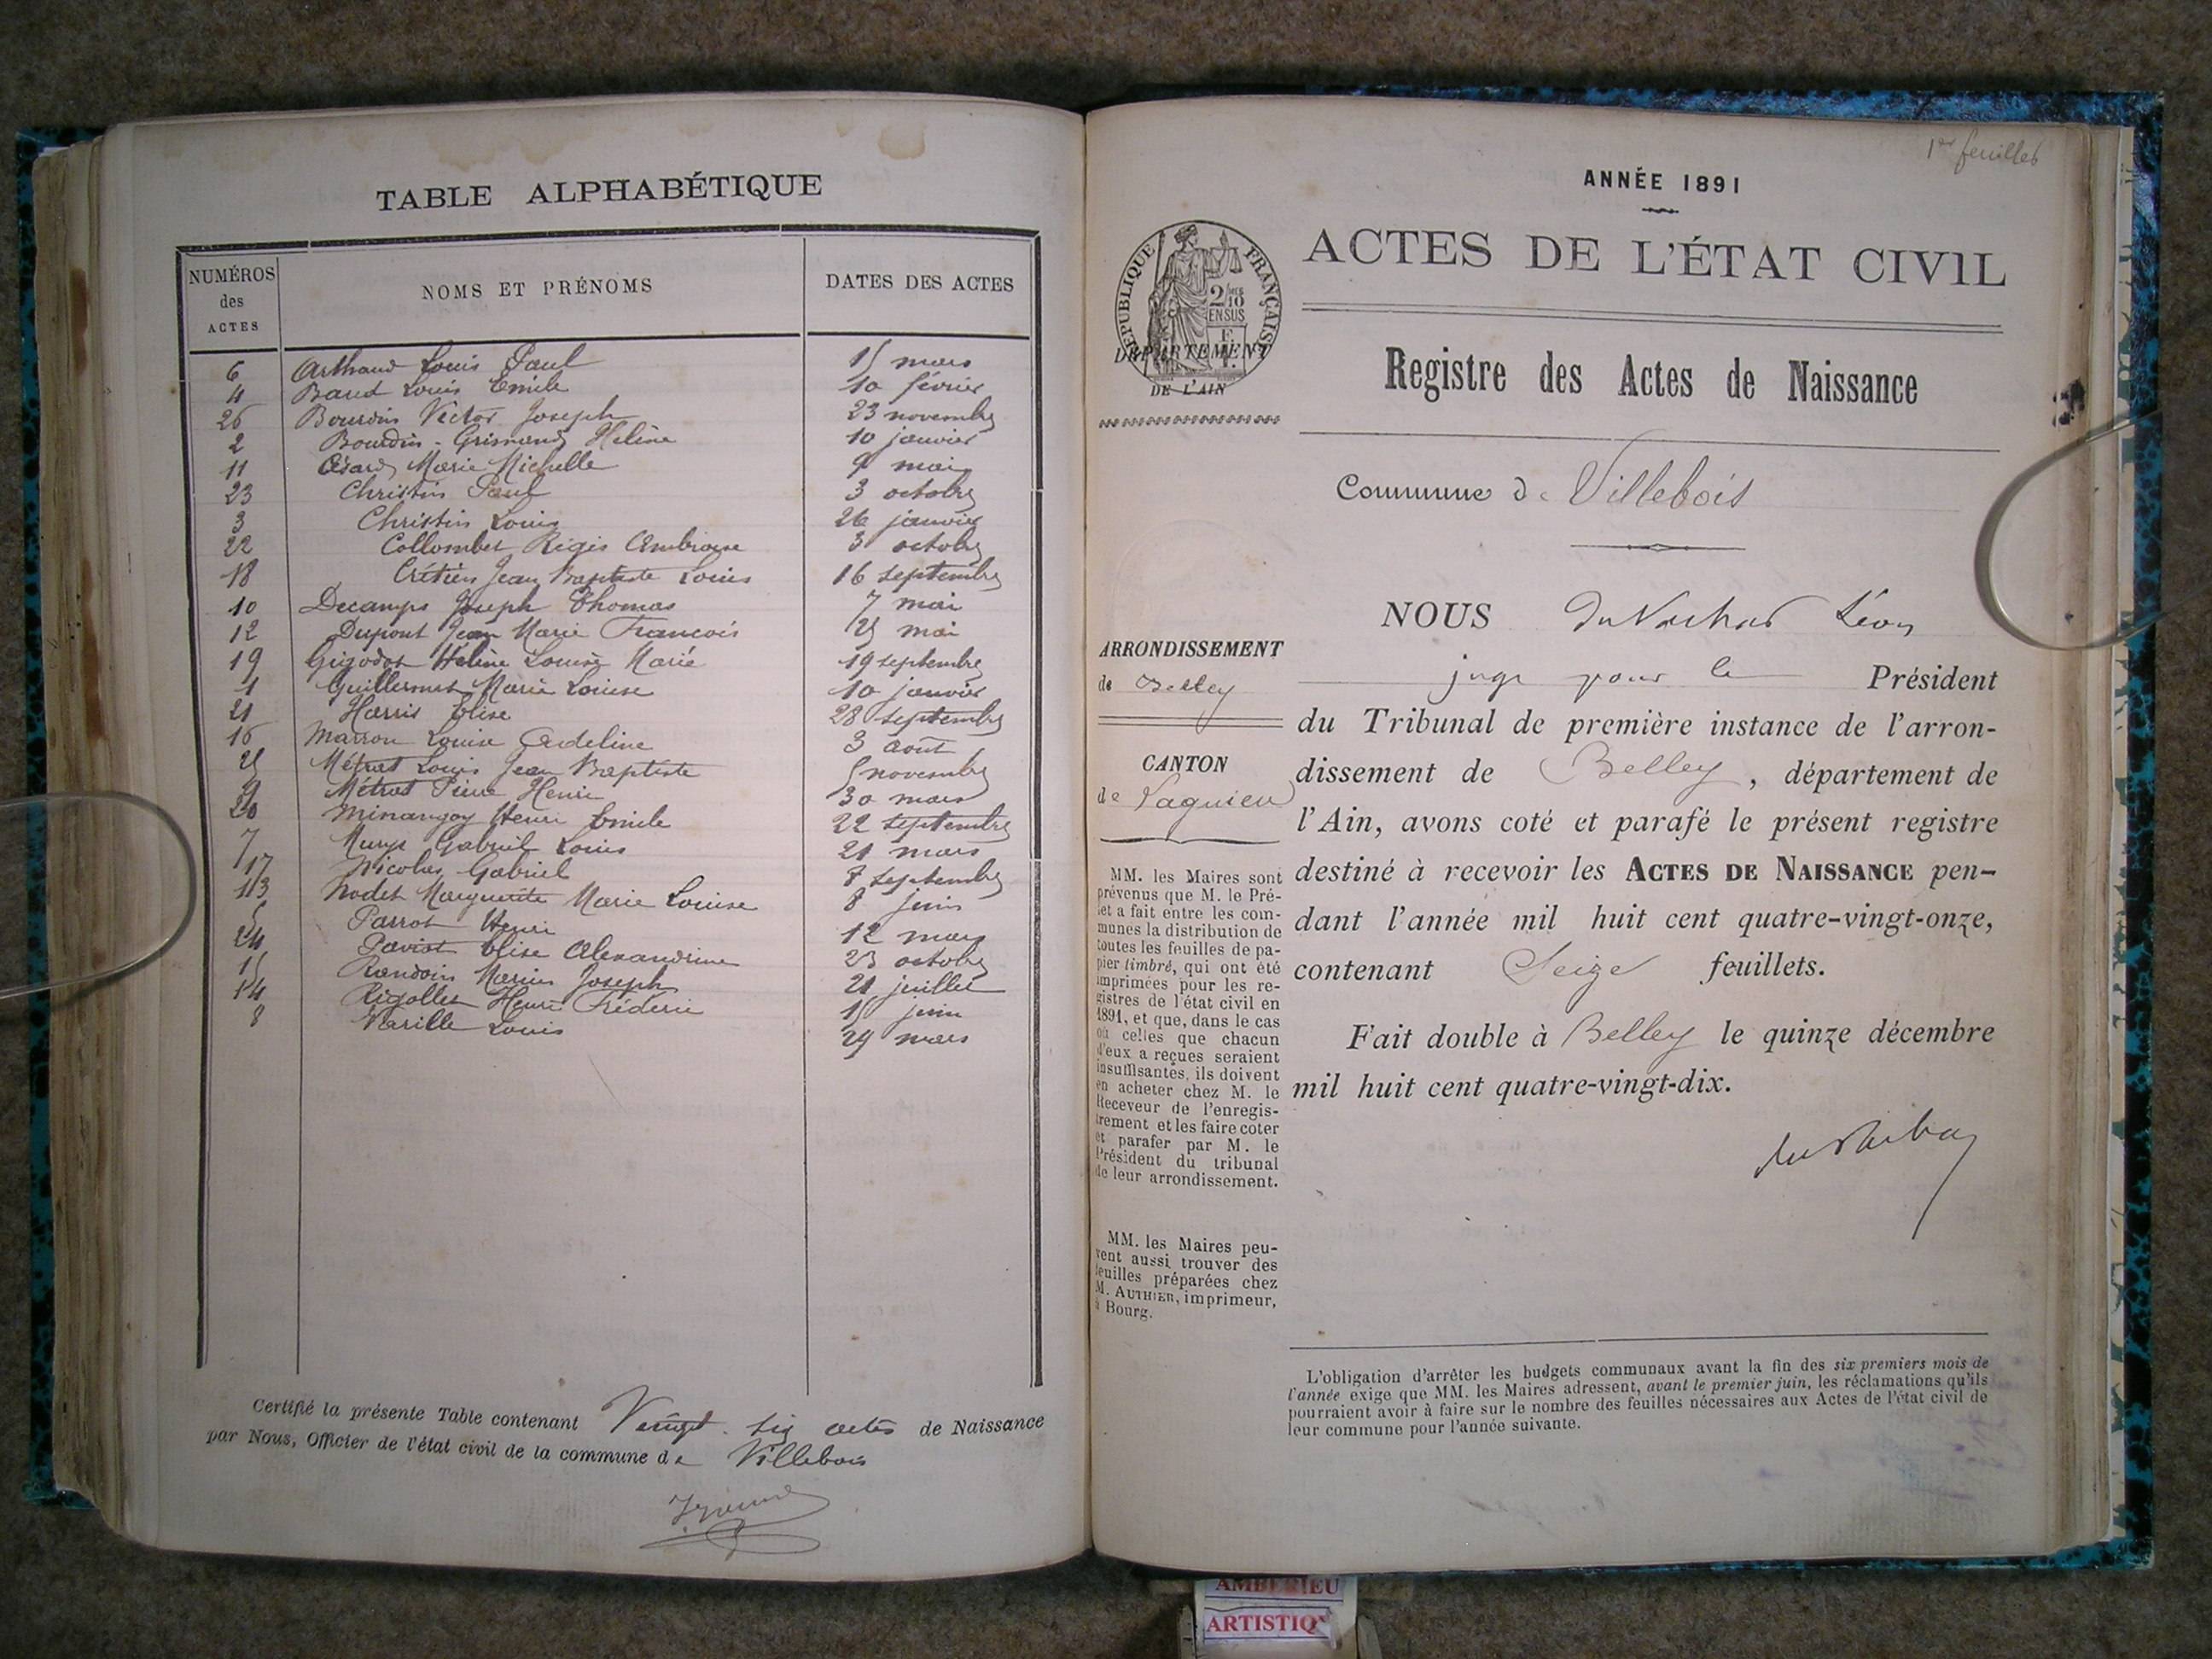 TABLE ALPHABÉTIQUE
NUMÉROS des ACTES NOMS ET PRÉNOMS DATES DES ACTES
6 Arthaud Louis Paul 15 mars
4 Baud Louis Emile 10 février
26 Bourdin Victor Joseph 23 novembre
2 Bourdin-Grimaud Hélène 10 janvier
11 Césard Marie Michelle 9 mai
23 Christin Paul 3 octobre
3 Christin Louis 26 janvier
22 Collombet Régis Ambroise 3 octobre
18 Crétien Jean Baptiste Louis 16 septembre
10 Decamps Joseph Thomas 7 mai
12 Dupont Jean Marie François 25 mai
19 Gigodot Hélène Louise Marie 19 septembre
1 Guillermet Marie Louise 10 janvier
21 Harris Elise 28 septembre
16 Marron Louise Adeline 3 août
25 Métrat Louis Jean Baptiste 5 novembre
9 Métrat Pierre Henri 30 mars
20 Minangoy Henri Emile 22 septembre
7 Gabriel Louis 21 mars
17 Nicolas Gabriel 7 septembre
13 Nodet Marguerite Marie Louise 8 juin
5 Parrot Henri 12 mars
24 Paviot Elise Alexandrine 23 octobre
15 Randoin Marius Joseph 21 juillet
14 Rigollet Henri Fréderic 15 juin
8 Varille Louis 29 mars
Certifié la présente Table contenant Veingt-six actes de Naissance
par Nous, Officier de l'état civil de la commune de Villebois
1er feuillet
ANNÉE 1891
ACTES DE L'ÉTAT CIVIL
RÉPUBLIQUE FRANÇAISE
2/10 EN SUS
DÉPARTEMENT
DE L'AIN
Registre des Actes de Naissance
Commune de Villebois
ARRONDISSEMENT
de Belley
CANTON
de Lagnieu
MM. les Maires sont
prévenus que M. le Pré-
fet a fait entre les com-
munes la distribution de
toutes les feuilles de pa-
pier timbré, qui ont été
imprimées pour les re-
gistres de l'état civil en
1891, et que, dans le cas
où celles que chacun
d'eux a reçues seraient
insuffisantes, ils doivent
en acheter chez M. le
Receveur de l'enregis-
trement et les faire coter
et parafer par M. le
Président du tribunal
de leur arrondissement.
MM. les Maires peu-
vent aussi trouver des
feuilles préparées chez
M. AUTHIER, imprimeur,
à Bourg.
NOUS Léon
juge pour le Président
du Tribunal de première instance de l'arron-
dissement de Belley, département de
l'Ain, avons coté et parafé le présent registre
destiné à recevoir les ACTES DE NAISSANCE pen-
dant l'année mil huit cent quatre-vingt-onze,
contenant Seize feuillets.
Fait double à Belley le quinze décembre
mil huit cent quatre-vingt-dix.
L'obligation d'arrêter les budgets communaux avant la fin des six premiers mois de
l'année exige que MM. les Maires adressent, avant le premier juin, les réclamations qu'ils
pourraient avoir à faire sur le nombre des feuilles nécessaires aux Actes de l'état civil de
leur commune pour l'année suivante.
AMBERIEU
ARTISTIQ